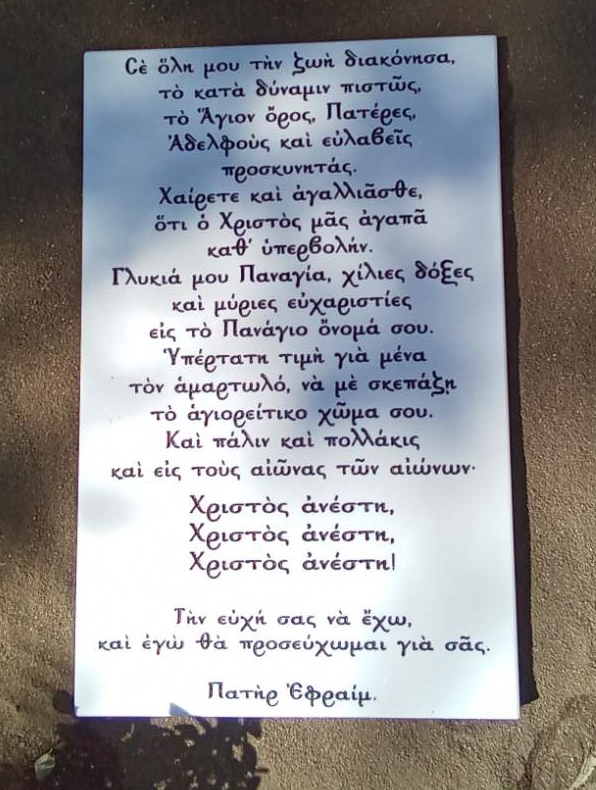 Σὲ ὅλη μου τὴν ζωὴ διακόνησα,
τὸ κατὰ δύναμιν πιστῶς,
τὸ Ἅγιον ὄρος, Πατέρες,
Ἀδελφοὺς καὶ εὐλαβεῖς
προσκυνητάς.
Χαίρετε καὶ ἀγαλλιᾶσθε,
ὅτι ὁ Χριστὸς μᾶς ἀγαπᾶ
καθ' ὑπερβολήν.
Γλυκιά μου Παναγία, χίλιες δόξες
καὶ μύριες εὐχαριστίες
εἰς τὸ Πανάγιο ὄνομά σου.
Ὑπέρτατη τιμὴ γιὰ μένα
τὸν ἁμαρτωλό, νὰ μὲ σκεπάζῃ
τὸ ἁγιορείτικο χῶμα σου.
Καὶ πάλιν καὶ πολλάκις
καὶ εἰς τοὺς αἰῶνας τῶν αἰώνων·
Χριστὸς ἀνέστη,
Χριστὸς ἀνέστη,
Χριστὸς ἀνέστη!
Τὴν εὐχή σας νὰ ἔχω,
καὶ ἐγὼ θὰ προσεύχωμαι γιὰ σᾶς.
Πατὴρ Ἐφραίμ.